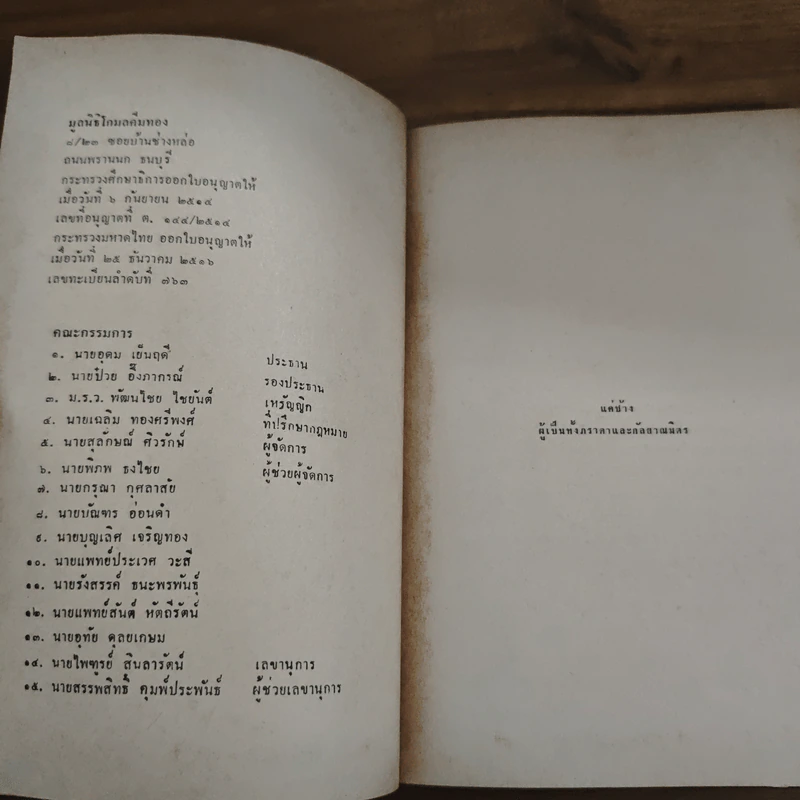 มูลนิธิโกมลคีมทอง
๘/๒๓ ซอยบ้านช่างหล่อ
ถนนพรานนก ธนบุรี
กระทรวงศึกษาธิการออกใบอนุญาตให้
เมื่อวันที่ ๖ กันยายน ๒๕๑๔
เลขที่อนุญาตที่ ต. ๑๔๔/๒๕๑๔
กระทรวงมหาดไทย ออกใบอนุญาตให้
เมื่อวันที่ ๒๕ ธันวาคม ๒๕๑๖
เลขทะเบียนลำดับที่ ๗๖๓
คณะกรรมการ
๑. นายอุดม เย็นฤดี ประธาน
๒. นายป๋วย อึ๊งภากรณ์ รองประธาน
๓. ม.ร.ว. พัฒนไชย ไชยันต์ เหรัญญิก
๔. นายเฉลิม ทองศรีพงศ์ ที่ปรึกษากฎหมาย
๕. นายสุลักษณ์ ศิวรักษ์ ผู้จัดการ
๖. นายพิภพ ธงไชย ผู้ช่วยผู้จัดการ
๗. นายกรุณา กุศลาสัย
๘. นายบัณฑร อ่อนดำ
๙. นายบุญเลิศ เจริญทอง
๑๐. นายแพทย์ประเวศ วะสี
๑๑. นายรังสรรค์ ธนะพรพันธุ์
๑๒. นายแพทย์สันต์ หัตถีรัตน์
๑๓. นายอุทัย ดุลยเกษม
๑๔. นายไพฑูรย์ สินลารัตน์ เลขานุการ
๑๕. นายสรรพสิทธิ์ คุมพ์ประพันธ์ ผู้ช่วยเลขานุการ
แด่ช้าง
ผู้เป็นทั้งภราดาและกัลยาณมิตร